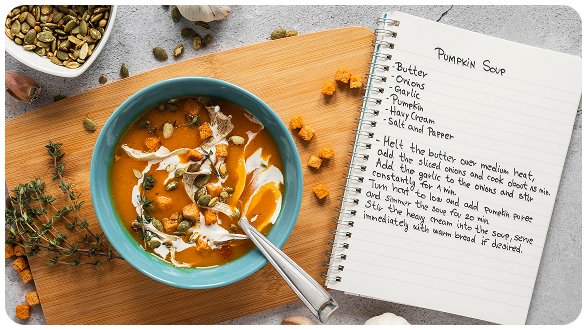 Pumpkin Soup
- Butter
- Onions
- Garlic
- Pumpkin
- Havy Cream
- Salt and Papper
- Melt the butter over medium heat,
add the sliced onions and cook about 15 min.
Add the garlic to the onions and stir
constantly for 1 min.
Turn heat to low and add pumplin puree
and simmer the soup for 20 min.
Stir the heavy cream into the soup, serve
immediately with warm bread if desired.